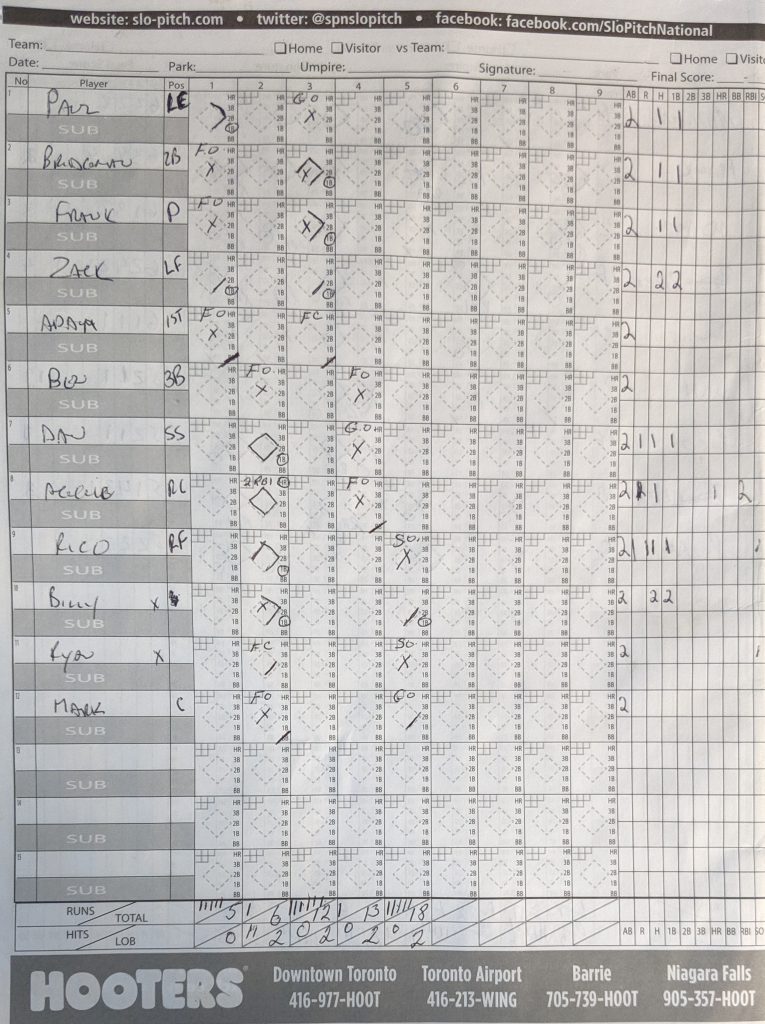 website: slo-pitch.com • twitter: @spnslopitch • facebook: facebook.com/SloPitchNational
Team: Home Visitor vs Team: Home Visit
Date: Park: Umpire: Signature: Final Score: -
No Player Pos 1 2 3 4 5 6 7 8 9 AB R H 1B 2B 3B HR BB RBI SO
1 PAUL GO 2 1 1
SUB
2 2B FO X 2 1 1
SUB
3 FRANK P FO X X 2 1 1
SUB
4 ZACK LF 2 2 2
SUB
5 ADAM 1ST FO X FC 2
SUB
6 BEN 3B FO X FO X 2
SUB
7 DAN SS GO X 2 1 1 1
SUB
8 RC 2 RBI FO X 2 1 1 1 2
SUB
9 RICO RF SO X 2 1 1 1 1
SUB
10 Billy X X 2 2 2
SUB
11 Ryan X FC SO X 2 1
SUB
12 MARK C FO X GO 2
SUB
13
SUB
14
SUB
15
SUB
RUNS TOTAL 5 1 6 12 1 13 18
HITS LOB 0 2 0 2 0 2 0 2 AB R H 1B 2B 3B HR BB RBI SO
HOOTERS
Downtown Toronto Toronto Airport Barrie Niagara Falls
416-977-HOOT 416-213-WING 705-739-HOOT 905-357-HOOT